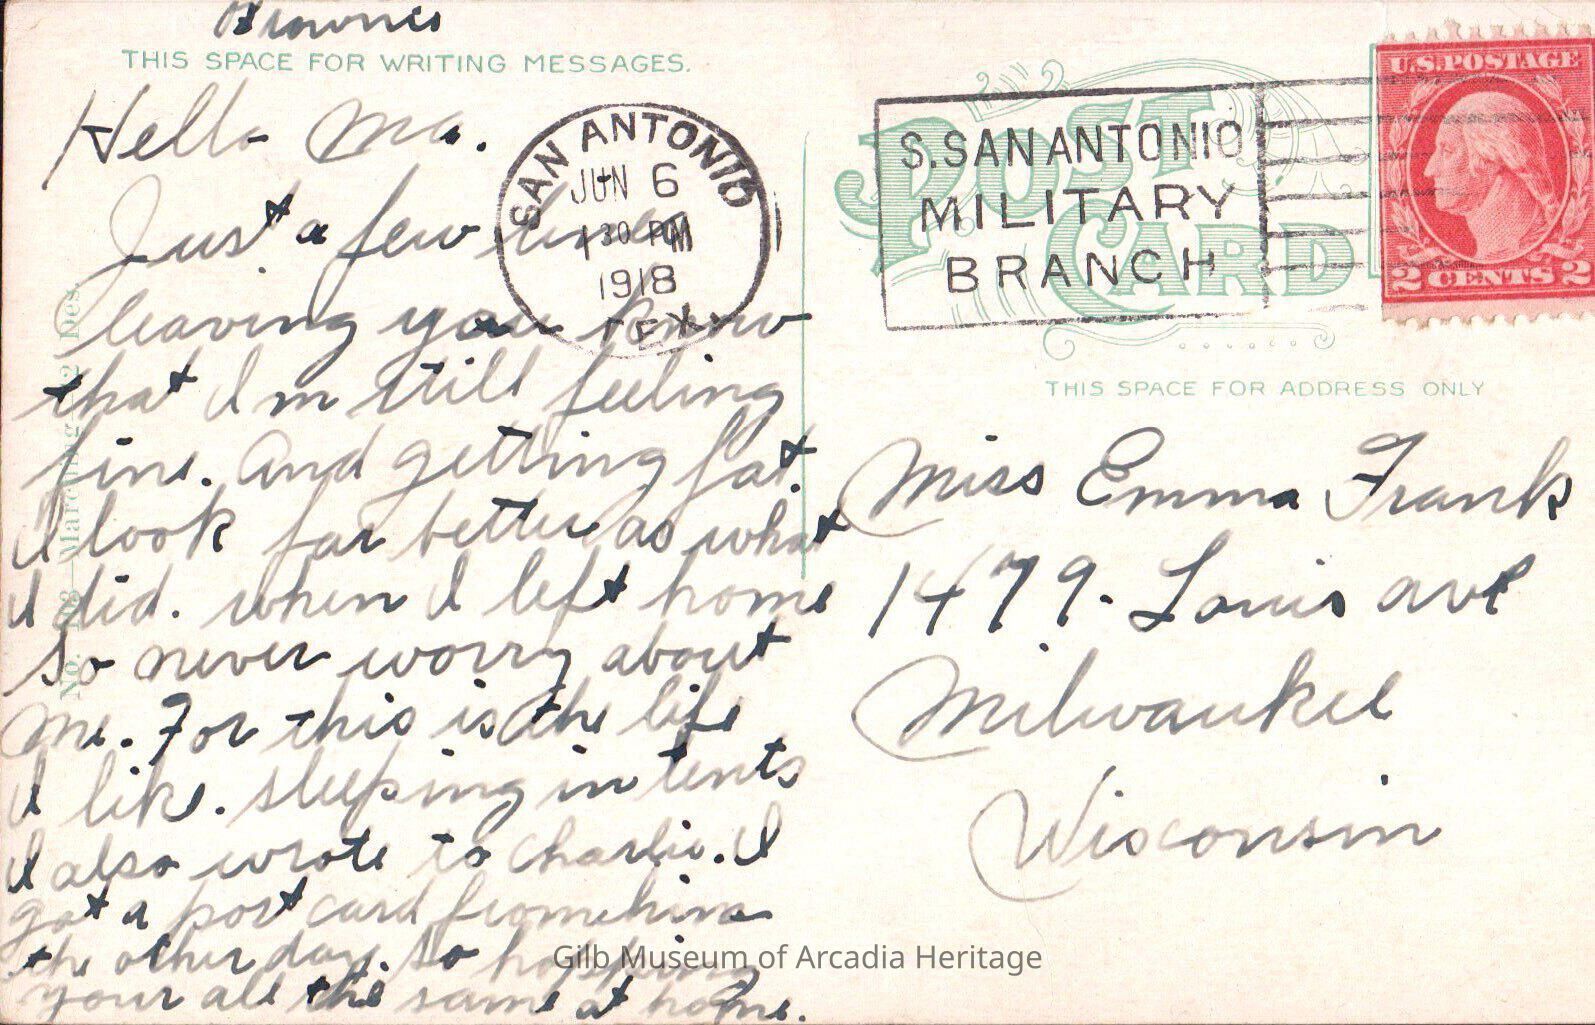 Brownie
THIS SPACE FOR WRITING MESSAGES.
Hello Ma.
Just a few lines
leaving you know
that I m still feeling
fine. And getting fat.
I look far better as what
I did. when I left home
so never worry about
me. For this is the life
I like. sleeping in tents
I also wrote to Charlie. I
got a post card from him
the other day. So hopping
your all the same at home.
No. 103—Marching—12 Des.
SAN ANTONIO
JUN 6
1 30 PM
1918
TEX.
S. SAN ANTONIO
MILITARY
BRANCH
POST
CARD
U.S. POSTAGE
2 CENTS 2
THIS SPACE FOR ADDRESS ONLY
Miss Emma Frank
1479. Louis ave
Milwaukee
Wisconsin
Gilb Museum of Arcadia Heritage